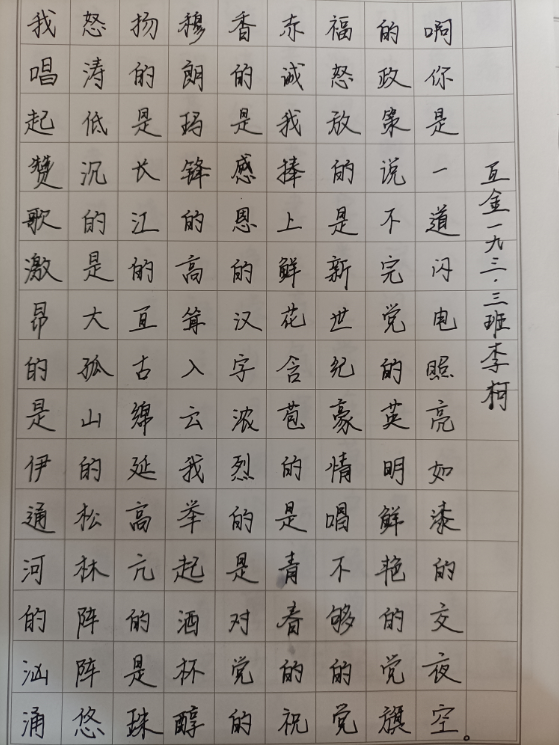 我唱起赞歌激昂的是伊通河的汹涌
怒涛低沉的是大孤山的松林阵阵悠
扬的是长江的亘古绵延高亢的是珠
穆朗玛锋的高耸入云我举起酒杯醇
香的是感恩的汉字浓烈的是对党的
赤诚我捧上鲜花含苞的是青春的祝
福怒放的是新世纪豪情唱不够的党
的政策说不完党的英明鲜艳的党旗
啊你是一道闪电照亮如漆的交夜空。
互金一九三·三班李柯